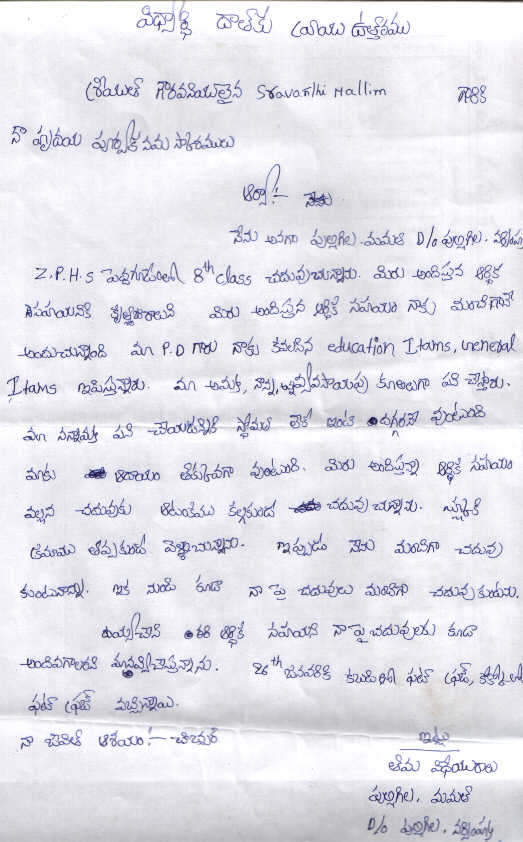 విద్యార్థి దాతకు వ్రాయు ఉత్తరము
శ్రీయుత గౌరవనీయులైన Sravanthi Mallim గారికి
నా హృదయ పూర్వక నమస్కారములు
ఆర్యా! :-
నేను అనగా పుల్లగిల. మమత D/o పుల్లగిల.
Z.P.H.S పెద్దగూడెంలో 8th class చదువుచున్నాను. మీరు అందిస్తున్న ఆర్థిక
సహాయానికి కృతజ్ఞురాలుని మీరు అందిస్తున్న ఆర్థిక సహాయం నాకు మంచిగానే
అందుచున్నాంది మా P.D గారు నాకు కావలసిన education Itams, General
Itams ఇపిస్తున్నారు. మా అమ్మ, నాన్న, వ్యవసాయపు కూలీలుగా పని చేస్తారు.
మా నాన్నమ్మ పని చేయడానికి స్తోమత లేక ఇంటి దగ్గరనే వుంటుంది
మాకు ఆదాయం తక్కువగా వుంటుంది. మీరు అందిస్తున్న ఆర్థిక సహాయం
వల్లన చదువుకు ఆటంకము కల్గకుండ చదువు చున్నాను. స్కూల్‌కి
క్రమము తప్పకుండ వెళ్ళుచున్నాను. ఇప్పుడు నేను మంచిగా చదువు
కుంటున్నాను. ఇక నుండి కూడా నా పై చదువులు మంచిగా చదువుకుంటును.
దయ్యుంచి ఆర్థిక సహాయం నా పై చదువులకు కూడా
అందివ్వగలరని మనవిచేస్తున్నాను. 26th జనవరికి కబడిలో ఫస్ట్ ప్రైజ్, ఖోఖోలో
ఫస్ట్ ప్రైజ్ వచ్చినాయి.
నా జీవిత ఆశయం :- టీచర్
ఇట్లు
తమ విధేయురాలు
పుల్లగిల. మమత
D/o పుల్లగిల.